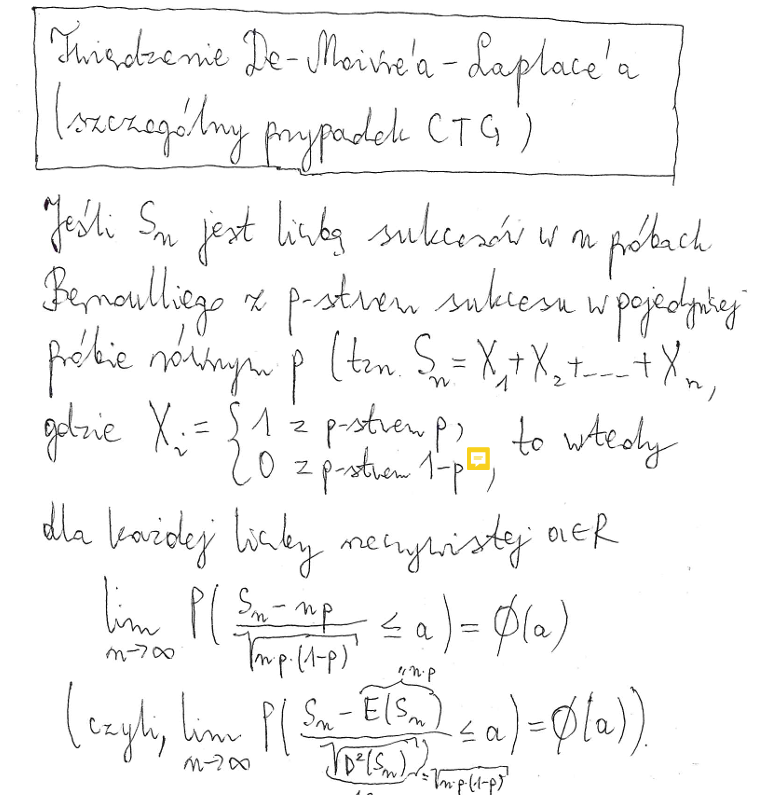 Twierdzenie De-Moivre'a-Laplace'a
(szczególny przypadek CTG)
Jeśli Sₙ jest liczbą sukcesów w n próbach
Bernoulliego z p-stwem sukcesu w pojedynczej
próbie równym p (tzn. Sₙ = X₁+X₂+....+Xₙ,
gdzie Xᵢ = { 1 z p-stwem p, to wtedy
0 z p-stwem 1-p,
dla każdej liczby rzeczywistej a∈R
lim n→∞ P( (Sₙ - np) / √(n·p·(1-p)) ≤ a ) = Φ(a)
"n·p
(czyli, lim n→∞ P( (Sₙ - E(Sₙ)) / √(D²(Sₙ)) ≤ a ) = Φ(a)).
= √(n·p·(1-p))